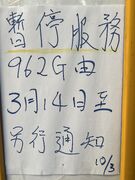 暫停服務
962G由
3月14日至
另行通知
10/3